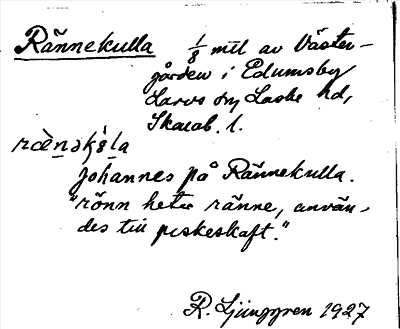 Rännekulla 1/8 mil av Väster-
gården i Edumsby
Larvs sn, Laske hd,
Skarab. l.
ræ̀nəkṣ̀la
Johannes på Rännekulla.
"rönn heter ränne, använ-
des till piskeskaft."
R. Ljunggren 1927